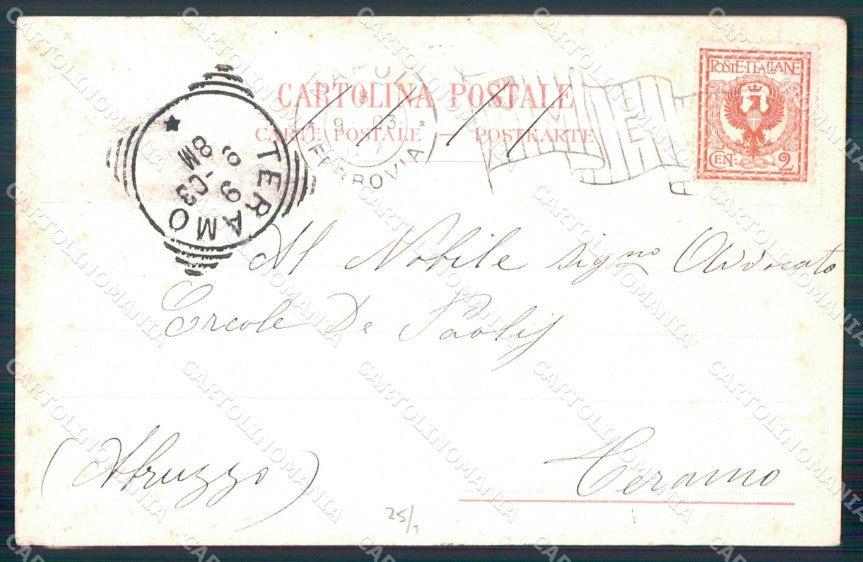 CARTOLINA POSTALE
CARTE POSTALE — POSTKARTE
NAPOLI
9 03
FERROVIA
POSTE·ITALIANE
CEN· 2
TERAMO
9 - 03
8M
Al Nobile Signo Avvocato
Ercole De Paolis
(Abruzzo)
Teramo
25/1
CARTOLINOMANIA